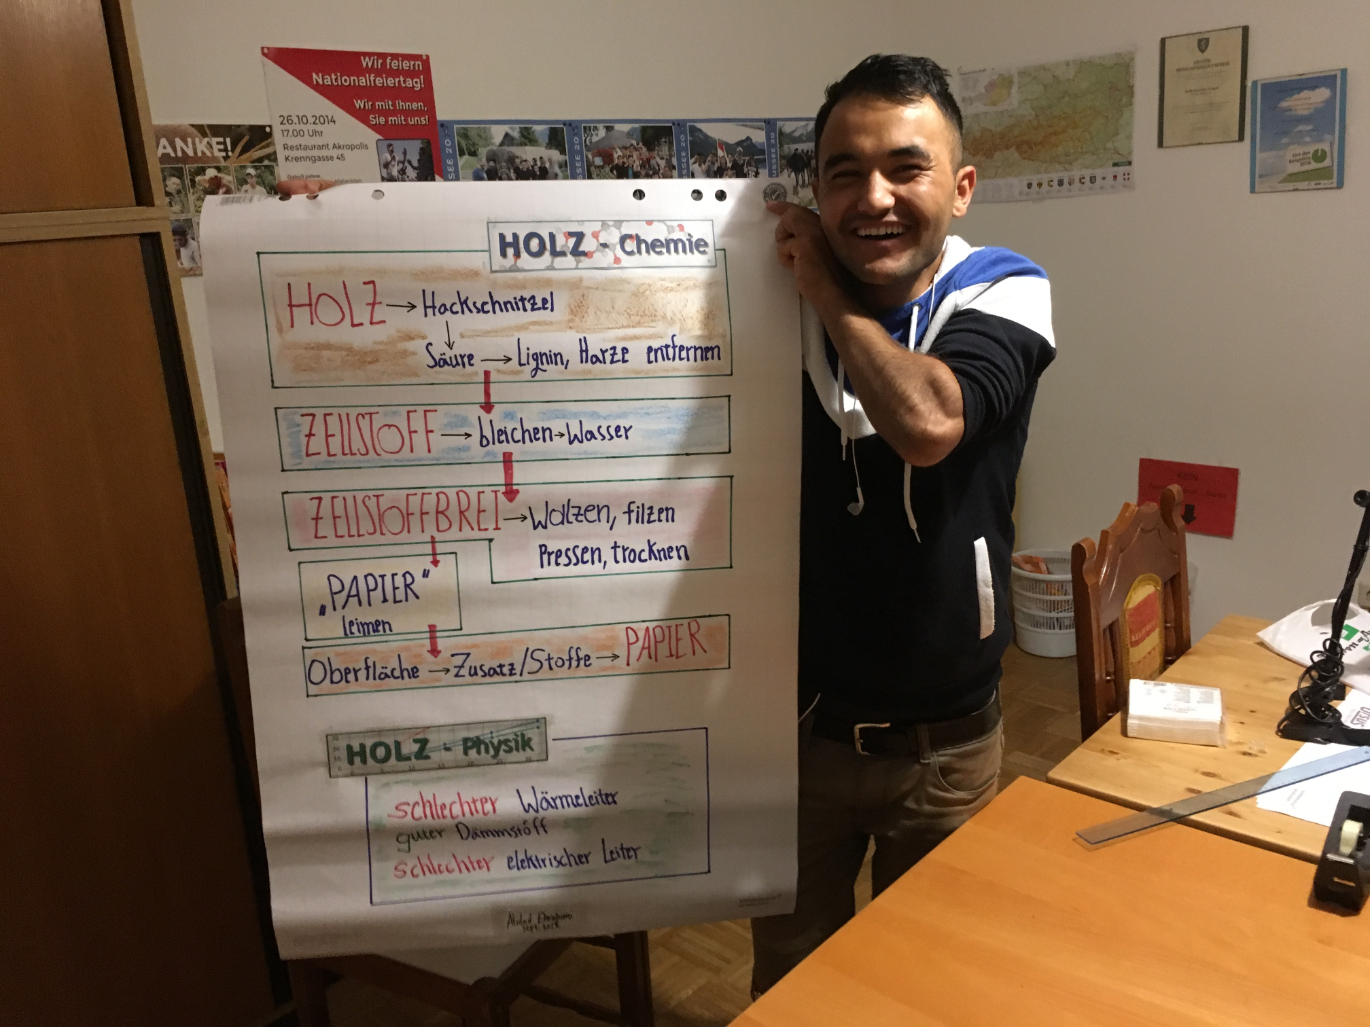 Wir feiern
Nationalfeiertag!
Wir mit Ihnen,
Sie mit uns!
26.10.2014
17.00 Uhr
Restaurant Akropolis
Krenngasse 45
ANKE!
HOLZ - Chemie
HOLZ → Hackschnitzel
↓
Säure → Lignin, Harze entfernen
ZELLSTOFF → bleichen → Wasser
ZELLSTOFFBREI → Walzen, filzen
Pressen, trocknen
„PAPIER“
leimen
Oberfläche → Zusatz/Stoffe → PAPIER
HOLZ - Physik
schlechter Wärmeleiter
guter Dämmstoff
schlechter elektrischer Leiter